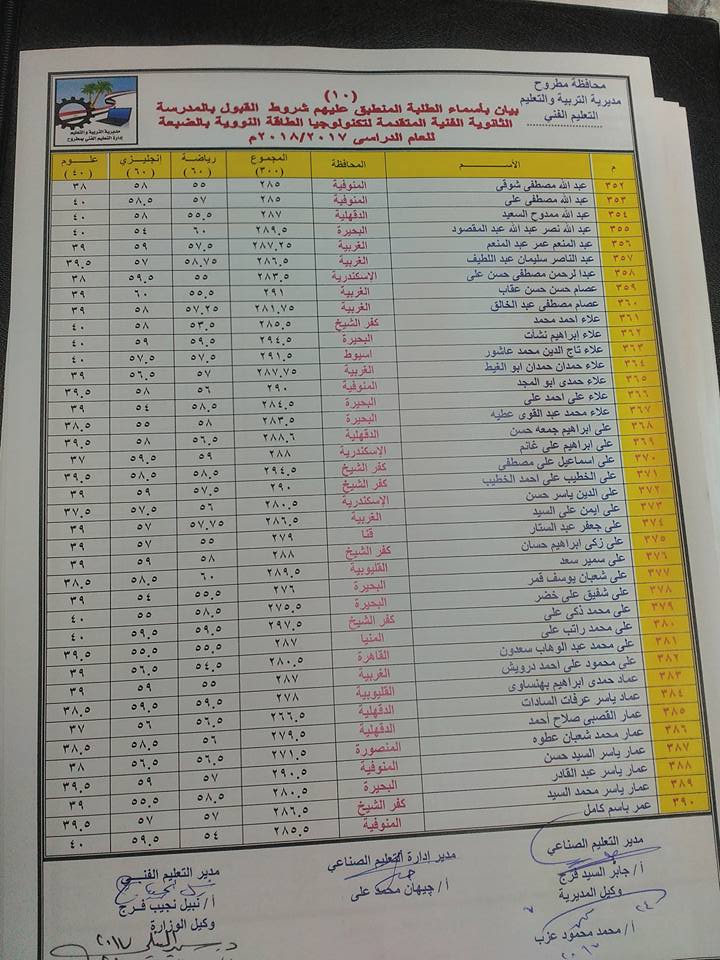 محافظة مطروح
مديرية التربية والتعليم
التعليم الفني
(١٠)
بيان بأسماء الطلبة المنطبق عليهم شروط القبول بالمدرسة
الثانوية الفنية المتقدمة لتكنولوجيا الطاقة النووية بالضبعة
للعام الدراسى ٢٠١٨/٢٠١٧م
مديرية التربية والتعليم
إدارة التعليم الفني بمطروح
م الأســـم المحافظة المجموع (٣٠٠) رياضة (٦٠) إنجليزي (٦٠) علوم (٤٠)
٣٥٢ عبد الله مصطفى شوقى المنوفية ٢٨٥ ٥٥ ٥٨ ٣٨
٣٥٣ عبد الله مصطفى على المنوفية ٢٨٥ ٥٧ ٥٨.٥ ٤٠
٣٥٤ عبد الله ممدوح السعيد الدقهلية ٢٨٧ ٥٥.٥ ٥٨ ٤٠
٣٥٥ عبد الله نصر عبد الله عبد المقصود البحيرة ٢٨٩.٥ ٦٠ ٥٤ ٤٠
٣٥٦ عبد المنعم عمر عبد المنعم الغربية ٢٨٧.٢٥ ٥٧.٥ ٥٩ ٣٩
٣٥٧ عبد الناصر سليمان عبد اللطيف الغربية ٢٨٦.٥ ٥٨.٧٥ ٥٧ ٣٩.٥
٣٥٨ عبدا لرحمن مصطفى حسن على الإسكندرية ٢٨٣.٥ ٥٥ ٥٩.٥ ٣٨
٣٥٩ عصام حسن حسن عقاب الغربية ٢٩١ ٥٥.٥ ٦٠ ٣٩
٣٦٠ عصام مصطفى عبد الخالق الغربية ٢٨١.٧٥ ٥٧.٢٥ ٥٨ ٣٩
٣٦١ علاء احمد محمد كفر الشيخ ٢٨٥.٥ ٥٣.٥ ٥٨ ٤٠
٣٦٢ علاء إبراهيم نشأت البحيرة ٢٩٤.٥ ٥٩.٥ ٥٩ ٤٠
٣٦٣ علاء تاج الدين محمد عاشور اسيوط ٢٩١.٥ ٥٧.٥ ٥٧.٥ ٤٠
٣٦٤ علاء حمدان حمدان ابو الغيط الغربية ٢٨٧.٧٥ ٥٧ ٥٦.٥ ٣٩
٣٦٥ علاء حمدى ابو المجد المنوفية ٢٩٠ ٥٦ ٥٨ ٣٩.٥
٣٦٦ علاء على احمد على البحيرة ٢٨٤.٥ ٥٨.٥ ٥٤ ٣٩
٣٦٧ علاء محمد عبد القوى عطيه البحيرة ٢٨٣.٥ ٥٨ ٥٥ ٣٨.٥
٣٦٨ على ابراهيم جمعه حسن الدقهلية ٢٨٨.٦ ٥٦.٥ ٥٨ ٣٩.٥
٣٦٩ على ابراهيم على غانم الإسكندرية ٢٨٨ ٥٩ ٥٩.٥ ٣٧
٣٧٠ على اسماعيل على مصطفى كفر الشيخ ٢٩٤.٥ ٥٨.٥ ٥٨.٥ ٣٩.٥
٣٧١ على الخطيب على احمد الخطيب كفر الشيخ ٢٩٠ ٥٧.٥ ٥٩ ٣٩
٣٧٢ على الدين ياسر حسن الإسكندرية ٢٨٠.٥ ٥٦ ٥٧.٥ ٣٧.٥
٣٧٣ على ايمن على السيد الغربية ٢٨٦.٥ ٥٧.٧٥ ٥٧ ٣٩
٣٧٤ على جعفر عبد الستار قنا ٢٧٩ ٥٥ ٥٧ ٣٩
٣٧٥ على زكى ابراهيم حسان كفر الشيخ ٢٨٨ ٥٨ ٥٩ ٣٩
٣٧٦ على سمير سعد القليوبية ٢٨٩.٥ ٦٠ ٥٨.٥ ٣٨.٥
٣٧٧ على شعبان يوسف قمر البحيرة ٢٧٦ ٥٥.٥ ٥٤ ٣٩
٣٧٨ على شفيق على خضر البحيرة ٢٧٥.٥ ٥٨.٥ ٥٥ ٤٠
٣٧٩ على محمد ذكى على كفر الشيخ ٢٩٧.٥ ٥٩.٥ ٥٩.٥ ٤٠
٣٨٠ على محمد راتب على المنيا ٢٨٧ ٥٥.٥ ٥٩.٥ ٣٩.٥
٣٨١ على محمد عبد الوهاب سعدون القاهرة ٢٨٠.٥ ٥٤.٥ ٥٦.٥ ٣٩
٣٨٢ على محمود على احمد درويش الغربية ٢٨٧ ٥٩ ٥٥ ٣٩
٣٨٣ عماد حمدى ابراهيم بهنساوى القليوبية ٢٧٨ ٥٩.٥ ٥٩.٥ ٣٨.٥
٣٨٤ عماد ياسر عرفات السادات الدقهلية ٢٦٦.٥ ٥٦.٥ ٥٦ ٣٧
٣٨٥ عمار القصبى صلاح احمد الدقهلية ٢٧٩.٥ ٥٦ ٥٨.٥ ٣٨.٥
٣٨٦ عمار محمد شعبان عطوه المنصورة ٢٧١.٥ ٥٦.٥ ٥٦.٥ ٣٨
٣٨٧ عمار ياسر السيد حسن المنوفية ٢٩٠.٥ ٥٧ ٥٩ ٣٩.٥
٣٨٨ عمار ياسر عبد القادر البحيرة ٢٨٠.٥ ٥٨.٥ ٥٥.٥ ٣٩
٣٨٩ عمار ياسر محمد السيد كفر الشيخ ٢٨٦.٥ ٥٧ ٥٧ ٣٩.٥
٣٩٠ عمر باسم كامل المنوفية ٢٨٥.٥ ٥٤ ٥٩.٥ ٤٠
مدير التعليم الصناعي
أ/ جابر السيد فرج
وكيل المديرية
أ/ محمد محمود عزب
مدير إدارة التعليم الصناعي
أ/ جيهان محمد على
مدير التعليم الفني
أ/ نبيل نجيب فرج
وكيل الوزارة